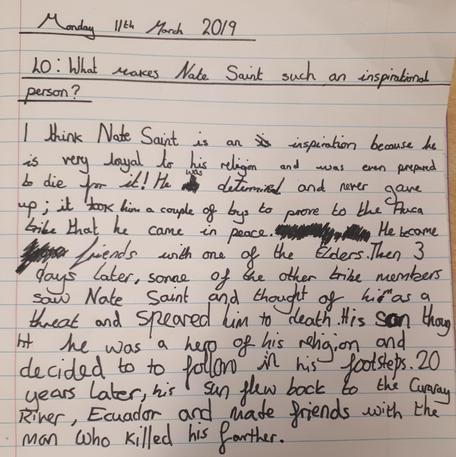 Monday 11th March 2019
LO: What makes Nate Saint such an inspirational
person?
I think Nate Saint is an inspiration because he
is very loyal to his religion and was even prepared
to die for it! He was determined and never gave
up; it took him a couple of goys to prove to the Auca
tribe that he came in peace. He become
friends with one of the Elders. Then 3
days later, some of the other tribe members
saw Nate Saint and thought of him as a
threat and speared him to death. His son thoug
ht he was a hero of his religion and
decided to to follow in his footsteps. 20
years later, his sun flew back to the Curaray
River, Ecuador and made friends with the
man who killed his farther.